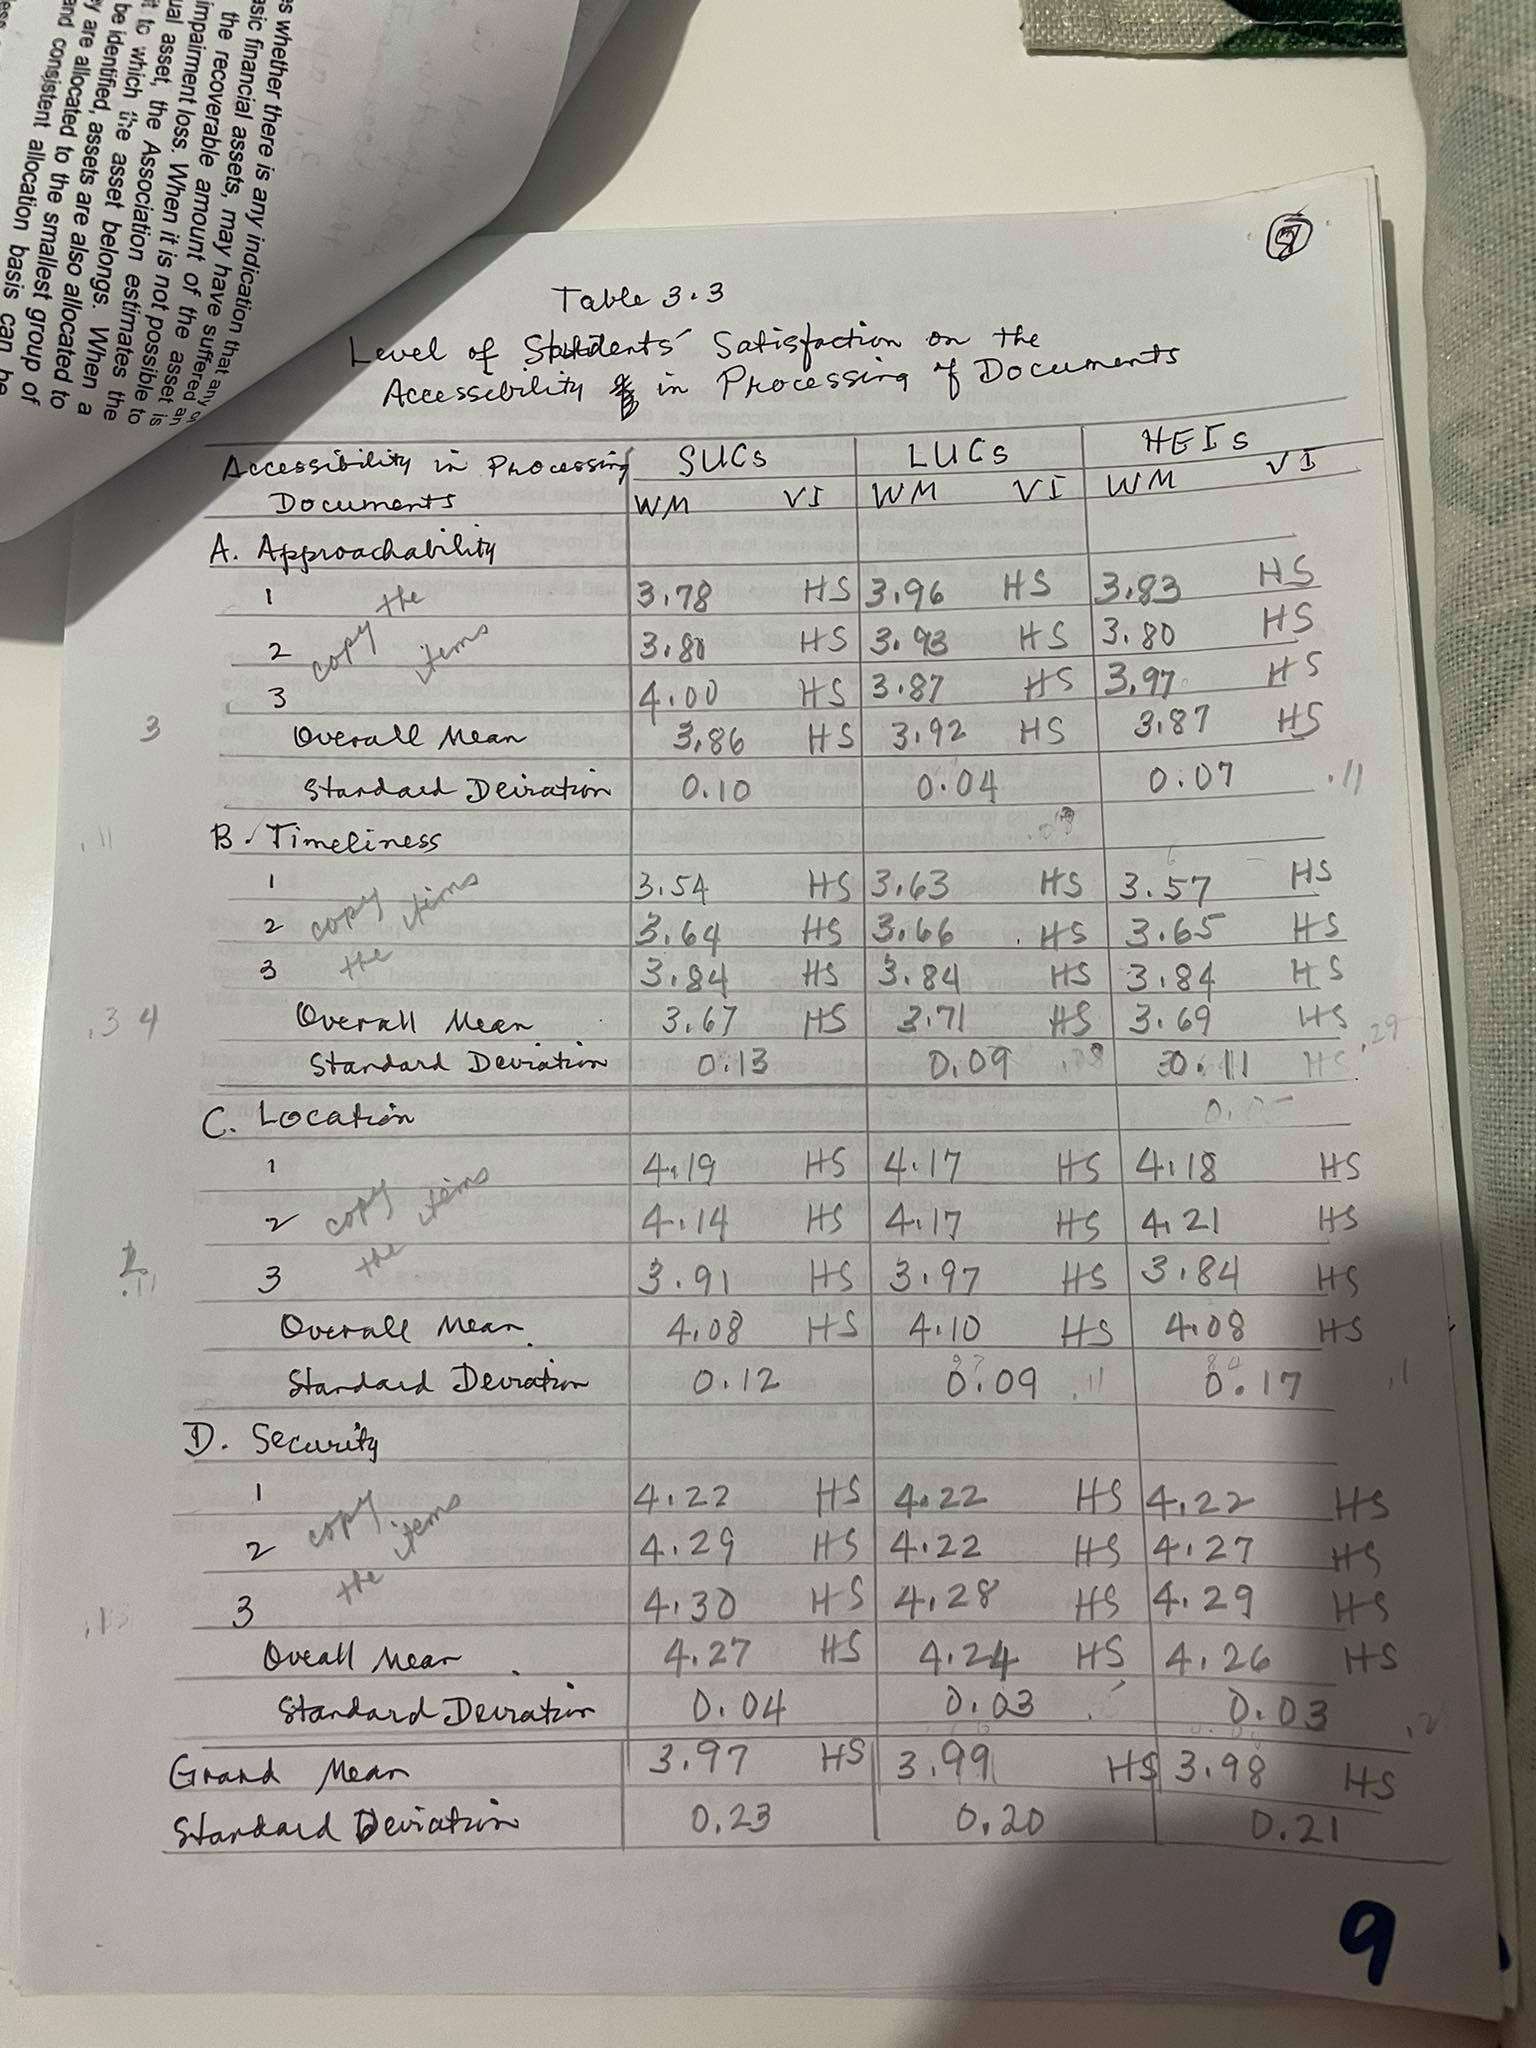 es whether there is any indication that any
asic financial assets, may have suffered an
the recoverable amount of the asset is
impairment loss. When it is not possible to
ual asset, the Association estimates the
it to which the asset belongs. When a
be identified, assets are also allocated to
y are allocated to the smallest group of
and consistent allocation basis can be
Table 3.3
Level of Students' Satisfaction on the
Accessebility in Processing of Documents
Accessibility in Processing SUCs LUCs HEIs
Documents WM VI WM VI WM VI
A. Approachability
1 3.78 HS 3.96 HS 3.83 HS
copy the items
2 3.80 HS 3.93 HS 3.80 HS
3 4.00 HS 3.87 HS 3.97 HS
3 Overall Mean 3.86 HS 3.92 HS 3.87 HS
Standard Deviation 0.10 0.04 0.07 .11
.11 B. Timeliness
1 3.54 HS 3.63 HS 3.57 HS
copy the items
2 3.64 HS 3.66 HS 3.65 HS
3 3.84 HS 3.84 HS 3.84 HS
.34 Overall Mean 3.67 HS 3.71 HS 3.69 HS .29
Standard Deviation 0.13 0.09 0.11 HS
C. Location
1 4.19 HS 4.17 HS 4.18 HS
copy the items
2 4.14 HS 4.17 HS 4.21 HS
3 3.91 HS 3.97 HS 3.84 HS
Overall Mean 4.08 HS 4.10 HS 4.08 HS
Standard Deviation 0.12 0.09 .11 0.17
D. Security
1 4.22 HS 4.22 HS 4.22 HS
copy the items
2 4.29 HS 4.22 HS 4.27 HS
3 4.30 HS 4.28 HS 4.29 HS
Oveall Mean 4.27 HS 4.24 HS 4.26 HS
Standard Deviation 0.04 0.03 0.03
Grand Mean 3.97 HS 3.99 HS 3.98 HS
Standard Deviation 0.23 0.20 0.21
9